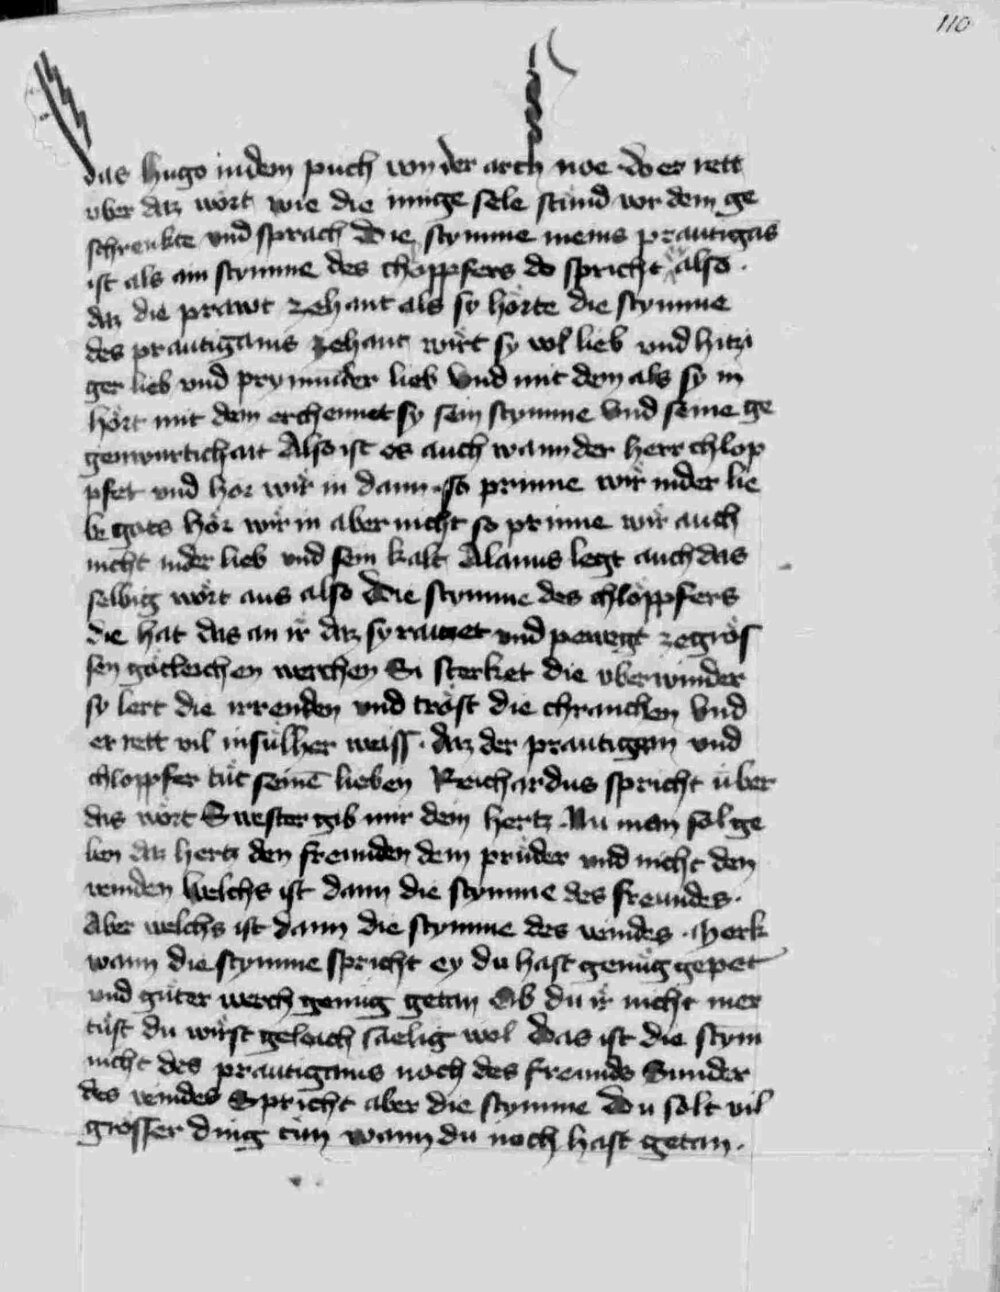 110
das hugo indem puch von der arch noe do er rett
vber daz wort wie die innige sele stund vor dem ge
schrenkte vnd sprach Die stymme meins prautigas
ist als ain stymme des chöppfers do spricht also .
daz die prawt zehant als sy hörte die stymme
des prautigams zehant wirt sy vol lieb vnd hitzi
ger lieb vnd prynnunder lieb Vnd mit dem als sy in
hört mit dem erchennet sy sein stymme Vnd seine ge
genwurtichait Also ist es auch wann der herr chlop
pfet vnd hor wir in dann . so prinne wir inder lie
be gots hör wir in aber nicht so prinne wir auch
nicht inder lieb vnd sein kalt Alanus legt auch das
selbig wort aus also Die stymme des chlöppfers
die hat das an ir daz sy raitzet vnd pewegt ze gros
sen götleichen werchen Si sterket die vberwinder
sy lert die irrenden vnd tröst die chranchen Vnd
er rett vil insülher weiss . daz der prautigan vnd
chloppfer tüt seinē lieben Reichardus spricht über
das wort Swester gib mir dein hertz . Nu man sol ge
ben daz hertz den freunden dem prüder vnd nicht den
veinden Welchs ist dann die stymme des freundes .
Aber welchs ist dann die stymme des veindes . Merk
wann die stymme spricht ey du hast genüg gepet
vnd güter werch genüg getan Ob du ir nicht mer
tüst du wirst geleich saelig wol Das ist die stym
nicht des prautigams noch des freunds Sunder
des veindes Spricht aber die stymme Du solt vil
grösser ding tün wann du noch hast getan .